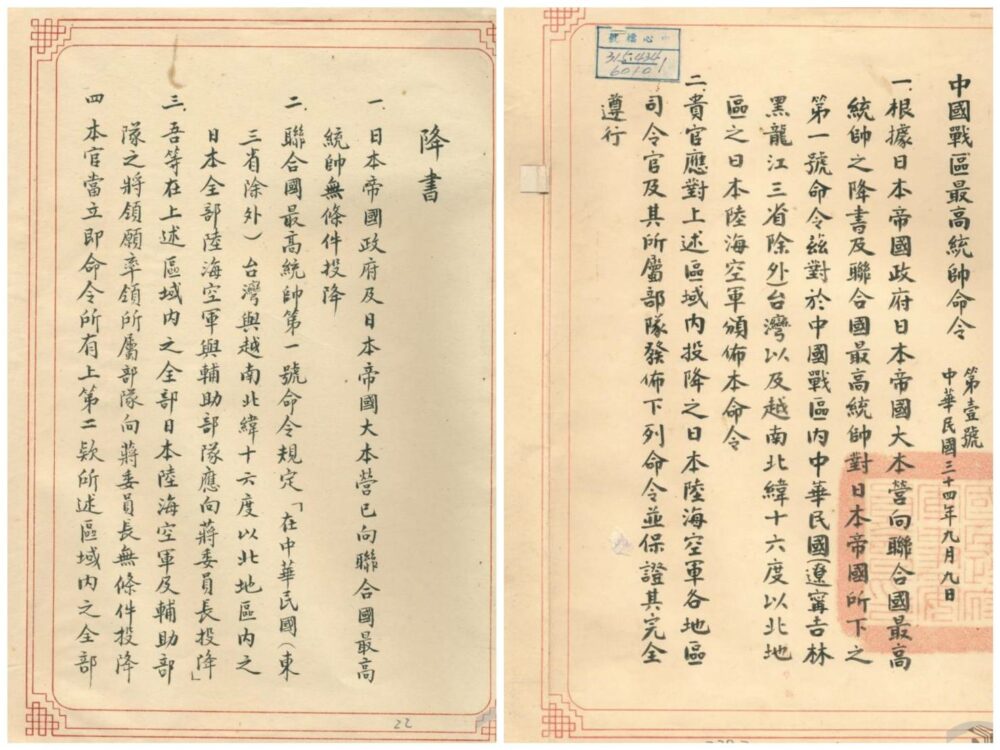 降書
一、日本帝國政府及日本帝國大本營已向聯合國最高
統帥無條件投降
二、聯合國最高統帥第一號命令規定「在中華民國（東
三省除外）台灣與越南北緯十六度以北地區內之
日本全部陸海空軍與輔助部隊應向蔣委員長投降」
三、吾等在上述區域內之全部日本陸海空軍及輔助部
隊之將領願率領所屬部隊向蔣委員長無條件投降
四　本官當立即命令所有上第二款所述區域內之全部
22
中心檔號
315.434
6010
中國戰區最高統帥命令
第壹號
中華民國三十四年九月九日
一、根據日本帝國政府日本帝國大本營向聯合國最高
統帥之降書及聯合國最高統帥對日本帝國所下之
第一號命令茲對於中國戰區內中華民國（遼寧吉林
黑龍江三省除外）台灣以及越南北緯十六度以北地
區之日本陸海空軍頒佈本命令
二、貴官應對上述區域內投降之日本陸海空軍各地區
司令官及其所屬部隊發佈下列命令並保證其完全
遵行